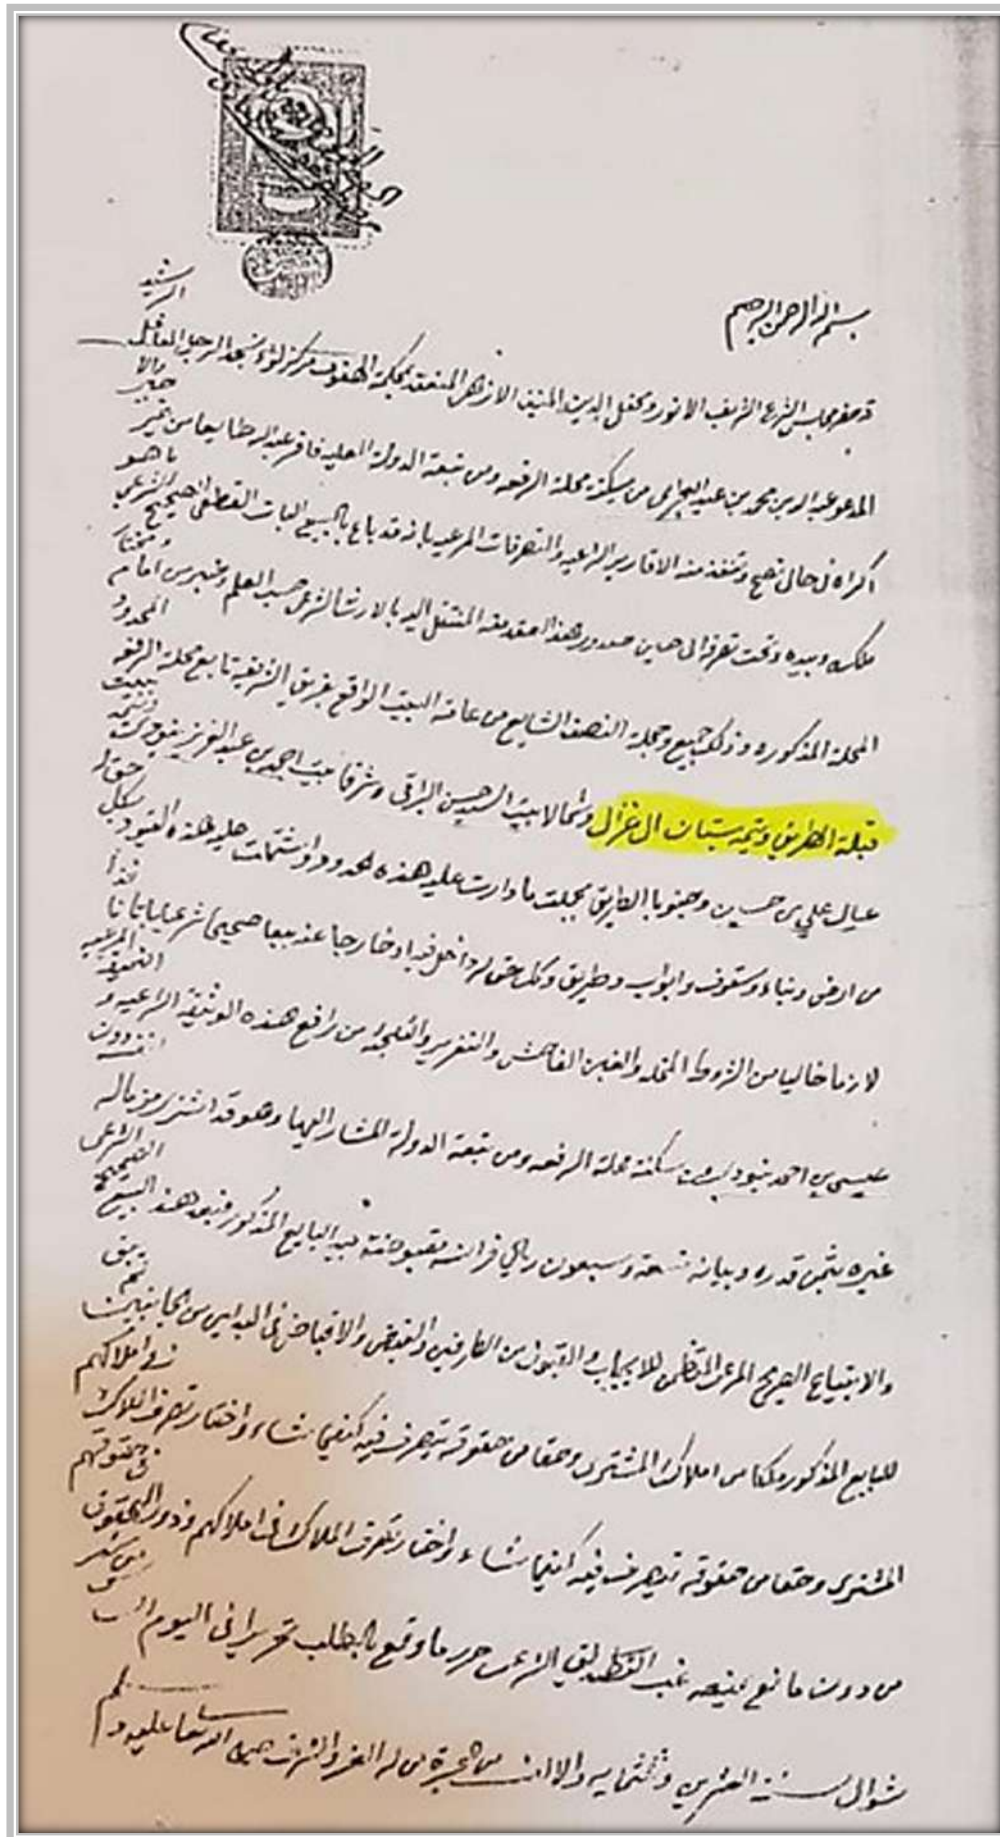 بسم الله الرحمن الرحيم
قد حضر مجلس الشرع الشريف الانور ومحفل الدين المنيف الازهر المنعقد بمحكمة الهفوف مركز لواء نجد الرجل العاقل الرشيد
المدعو عبد الله بن محمد بن عيد من سكنة محلة الرفعه ومن تبعة الدولة العليه فاقر عنده طايعا من غير
اكراه في حال تصح وتنفذ منه الاقارير الشرعيه والتصرفات المرعيه بانه قد باع بالبيع البات القطعي الصحيح الشرعي ما هو
ملكه وبيده وتحت تصرفه الى حين صدور هذا العقد منه المنتقل اليه بالارث الشرعي حسب العلم وخبر من امام ومختار
المحلة المذكوره وذلك جميع وجملة النصف الشايع من عامة البيت الواقع بفريق الشريفيه تابع محلة الرفعه المحدود
قبلة الطريق وتتمه بستان ال غزال وشمالا بيت السيد حسين وشرقا بيت احمد بن عبد العزيز وتتمته بيت
عيال علي بن حسين وجنوبا الطريق بجملت ما دارت عليه هذه الحدود واشتملت عليه هذه القيود بكل حق له
من ارض وبناء وسقوف وابواب وطريق وكل حق له داخل فيه او خارجا عنه بيعا صحيحا شرعيا باتاتا نافذا
لازما خاليا من الشروط المخله والغبن الفاحش والتغرير من رافع هذه الوثيقة الشرعيه و النميقة المرعيه
عيسى بن احمد سكنة محلة الرفعه ومن تبعة الدولة المشار اليها وهو قد اشترى من ماله لنفسه دون
غيره بثمن قدره وبيانه تسعة وسبعون ريال فرانسه مقبوضة بيد البايع المذكور هذا البيع الصحيح الشرعي
والابتياع الصريح المرعي للايجاب والقبول من الطرفين والقبض والاقباض في البدلين من الجانبين لم يبق
للبايع المذكور ملكا من املاك المشتري وحقا من حقوقه يتصرف فيه كيفما شاء واختار تصرف الملاك في املاكهم
المشتري وحقا من حقوقه يتصرف فيه كيفما شاء واختار تصرف الملاك في املاكهم وذوي الحقوق في حقوقهم
من دون مانع يمنعه غب الشرعي حرر ما وقع بالطلب تحريرا في اليوم من شهر
شوال سنة العشرين وثلثمايه والالف من هجرة من له العز والشرف صلى الله تعالى عليه وسلم